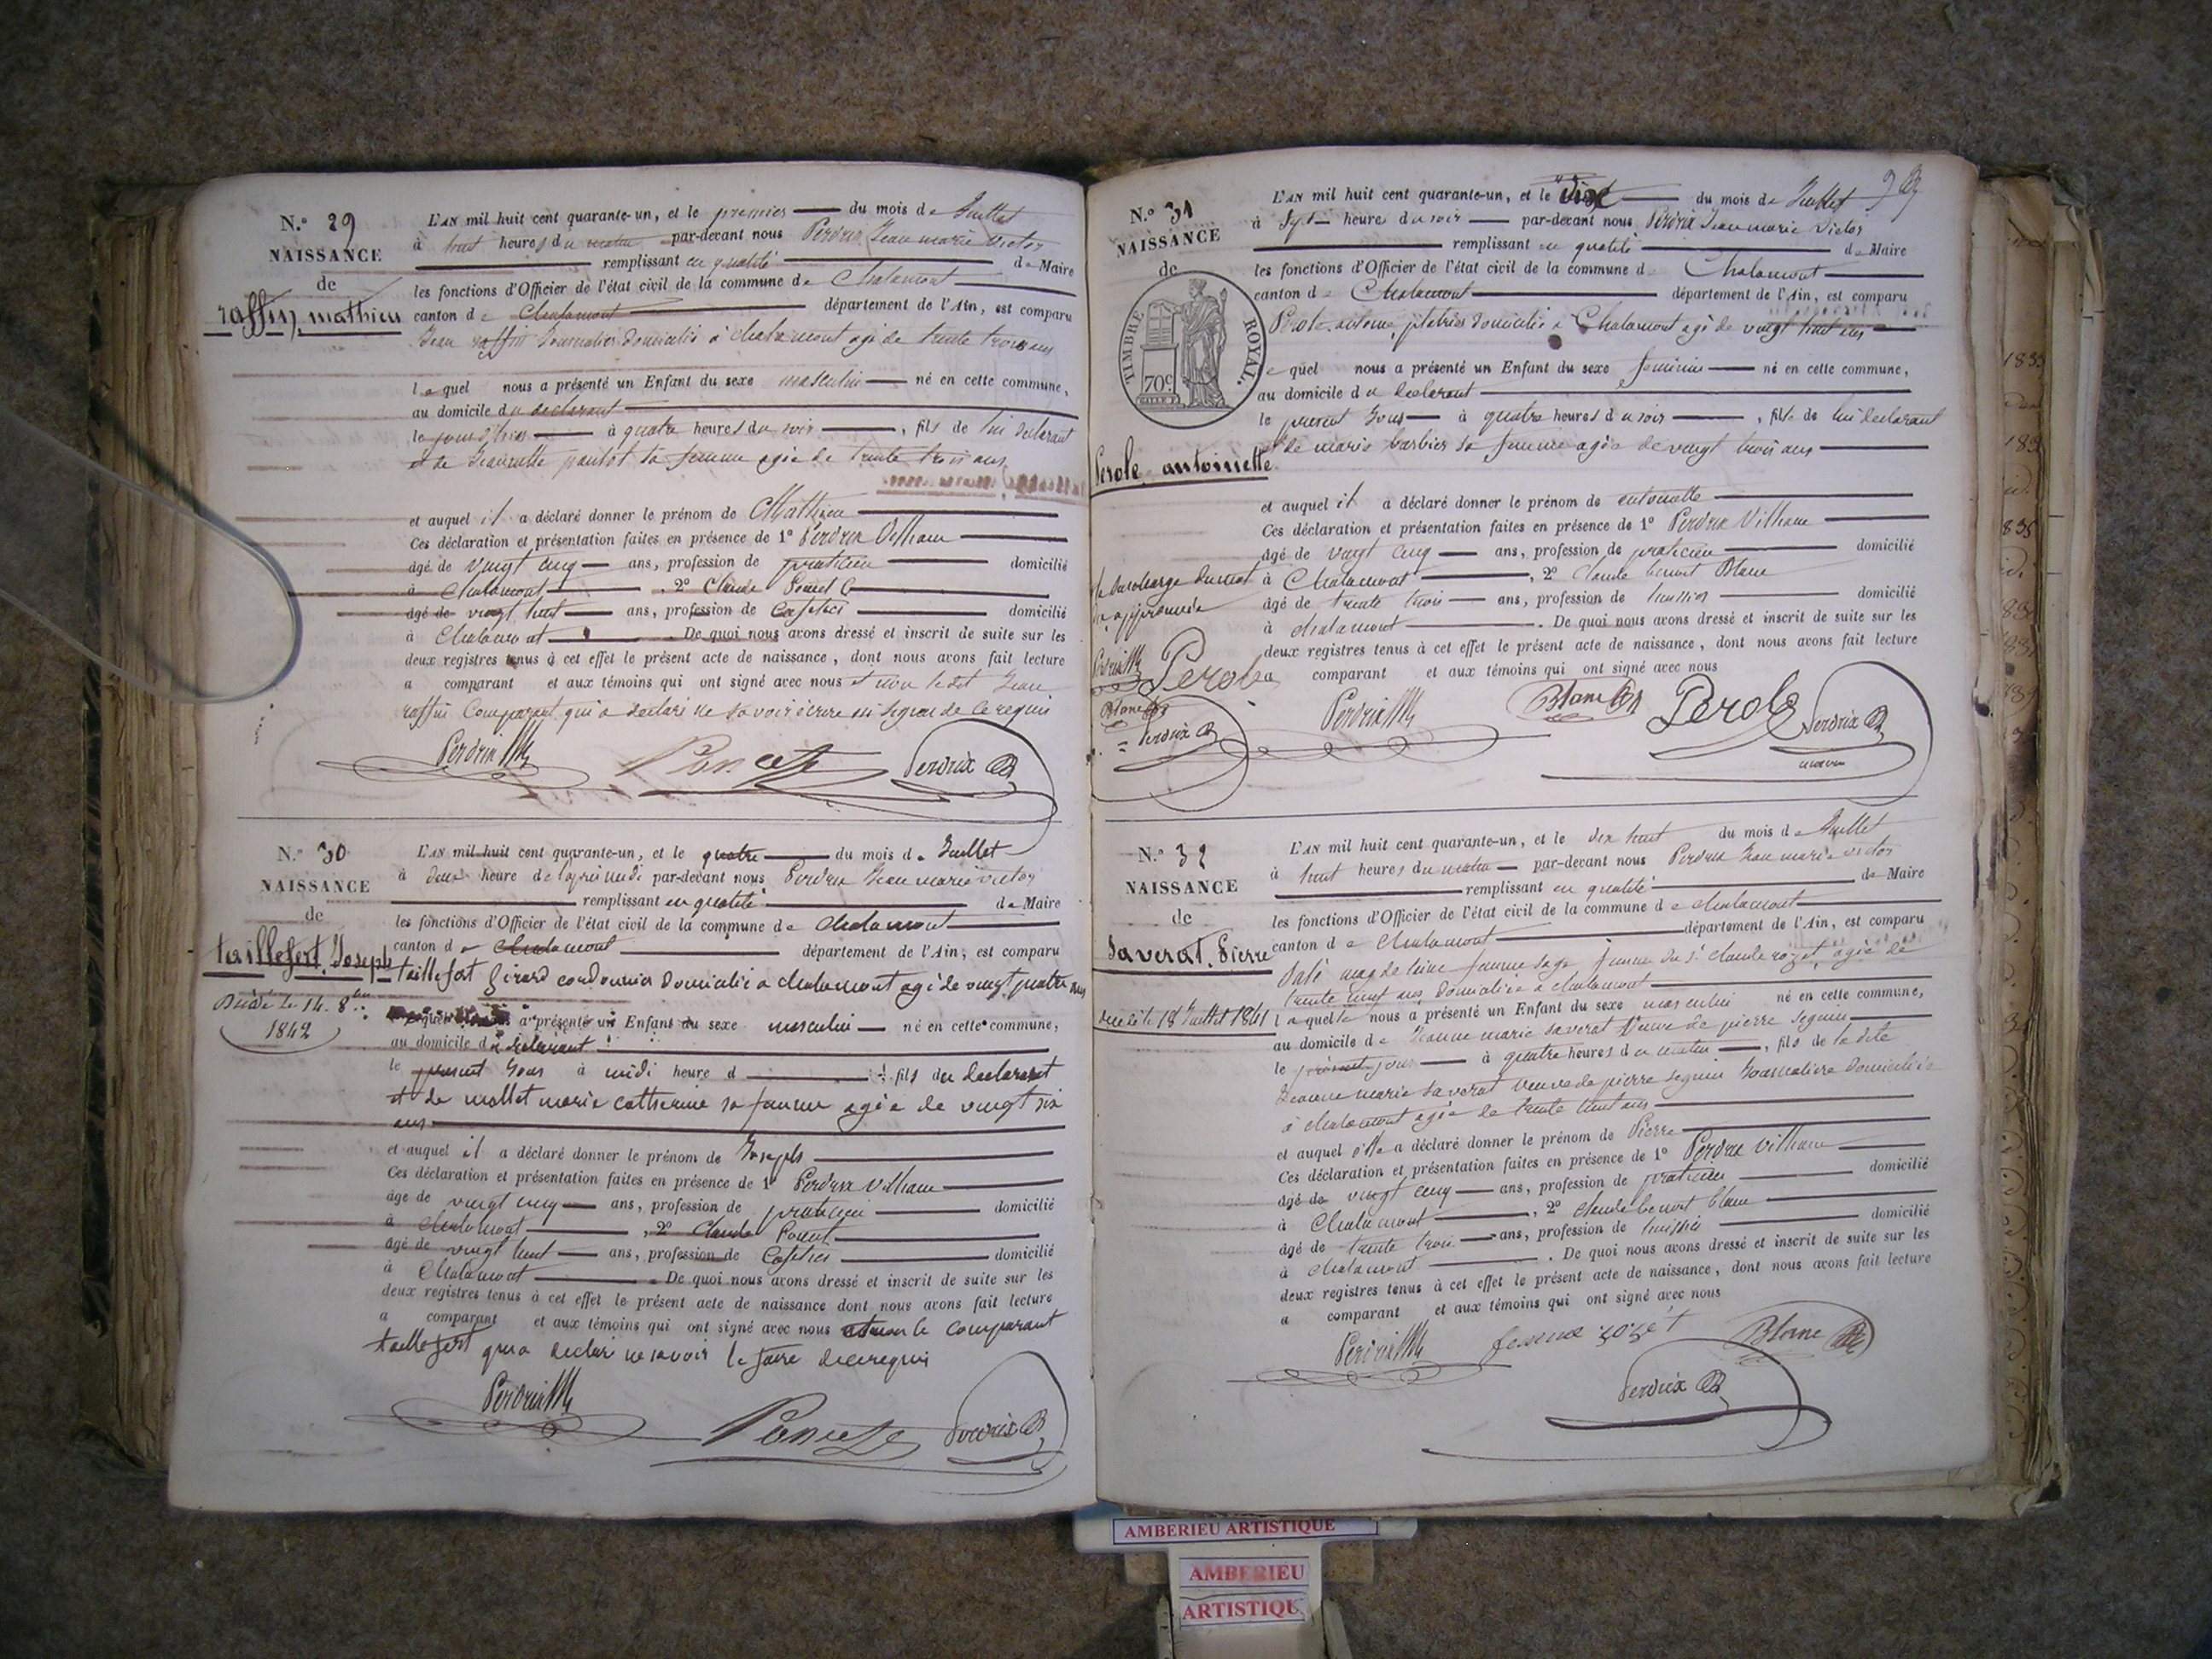 N.° 29
NAISSANCE
de
raffin, mathieu
L'AN mil huit cent quarante-un, et le premier du mois de Juillet
à huit heures du matin par-devant nous Perdrix Jean marie victor
remplissant en qualité de Maire
les fonctions d'Officier de l'état civil de la commune de Chalamont
canton de Chalamont département de l'Ain, est comparu
Jean raffin Journalier domicilié à chalamont agé de trente trois ans
lequel nous a présenté un Enfant du sexe masculin né en cette commune,
au domicile du declarant
le jour d'hier à quatre heures du soir, fils de lui declarant
et de sa femme agée de trente trois ans
et auquel il a déclaré donner le prénom de Mathieu
Ces déclaration et présentation faites en présence de 1° Perdrix
âgé de vingt cinq ans, profession de praticien domicilié
à Chalamont, 2° Claude
âgé de vingt huit ans, profession de Cafetier domicilié
à Chalamont. De quoi nous avons dressé et inscrit de suite sur les
deux registres tenus à cet effet le présent acte de naissance, dont nous avons fait lecture
a comparant et aux témoins qui ont signé avec nous et non ledit Jean
raffin Comparant qui a declaré ne savoir écrire ni signer de ce requis
Perdrix Poncet Perdrix
N.° 30
NAISSANCE
de
taillefert, Joseph
Décédé le 14. 8bre
1842
L'AN mil huit cent quarante-un, et le quatre du mois de Juillet
à deux heure de l'après midi par-devant nous Perdrix Jean marie victor
remplissant en qualité de Maire
les fonctions d'Officier de l'état civil de la commune de chalamont
canton de Chalamont département de l'Ain, est comparu
taillefert girard cordonnier domicilié a chalamont agé de vingt quatre ans
a présenté un Enfant du sexe masculin né en cette commune,
au domicile du declarant
le present Jour à midi heure d fils du declarant
et de mollet marie catherine sa femme agée de vingt six
ans
et auquel il a déclaré donner le prénom de Joseph
Ces déclaration et présentation faites en présence de 1° Perdrix Villiam
âgé de vingt cinq ans, profession de praticien domicilié
à chalamont, 2° Claude Poncet
âgé de vingt huit ans, profession de Cafetier domicilié
à Chalamont. De quoi nous avons dressé et inscrit de suite sur les
deux registres tenus à cet effet le présent acte de naissance dont nous avons fait lecture
a comparant et aux témoins qui ont signé avec nous et non le comparant
taillefert qui a declaré ne savoir le faire de ce requis
Perdrix Poncet Perdrix
N.° 31
NAISSANCE
de
TIMBRE ROYAL.
70c
Perole antoinette
la surcharge du mot
dix approuvée
Perole
Blanc
Perdrix
L'AN mil huit cent quarante-un, et le dix du mois de Juillet
à sept heures du soir par-devant nous Perdrix Jean marie victor
remplissant en qualité de Maire
les fonctions d'Officier de l'état civil de la commune de Chalamont
canton de Chalamont département de l'Ain, est comparu
Perole antoine platrier domicilié à Chalamont agé de vingt huit ans
lequel nous a présenté un Enfant du sexe feminin né en cette commune,
au domicile du declarant
le present Jour à quatre heures du soir, fille de lui declarant
et de marie barbier sa femme agée de vingt trois ans
et auquel il a déclaré donner le prénom de antoinette
Ces déclaration et présentation faites en présence de 1° Perdrix Villiam
âgé de vingt cinq ans, profession de praticien domicilié
à Chalamont, 2° claude benoit Blanc
âgé de trente trois ans, profession de huissier domicilié
à chalamont. De quoi nous avons dressé et inscrit de suite sur les
deux registres tenus à cet effet le présent acte de naissance, dont nous avons fait lecture
a comparant et aux témoins qui ont signé avec nous
Perdrix Blanc Perole Perdrix
N.° 32
NAISSANCE
de
Saverat. Pierre
decédé le 18 Juillet 1841
L'AN mil huit cent quarante-un, et le dix huit du mois de Juillet
à huit heures du matin par-devant nous Perdrix Jean marie victor
remplissant en qualité de Maire
les fonctions d'Officier de l'état civil de la commune de chalamont
canton de Chalamont département de l'Ain, est comparu
magdeleine femme sage femme du sr claude rozet, agée de
trente neuf ans domiciliée a chalamont
laquelle nous a présenté un Enfant du sexe masculin né en cette commune,
au domicile de Jeanne marie saverat veuve de pierre seguin
le présent jour à quatre heures du matin, fils de la dite
Jeanne marie saverat veuve de pierre seguin Journaliere domiciliée
à chalamont agée de trente huit ans
et auquel elle a déclaré donner le prénom de Pierre
Ces déclaration et présentation faites en présence de 1° Perdrix Villiam
âgé de vingt cinq ans, profession de praticien domicilié
à Chalamont, 2° claude benoit blanc
âgé de trente trois ans, profession de huissier domicilié
à chalamont. De quoi nous avons dressé et inscrit de suite sur les
deux registres tenus à cet effet le présent acte de naissance, dont nous avons fait lecture
a comparant et aux témoins qui ont signé avec nous
Perdrix femme rozet Blanc
Perdrix
AMBERIEU ARTISTIQUE
AMBERIEU
ARTISTIQUE